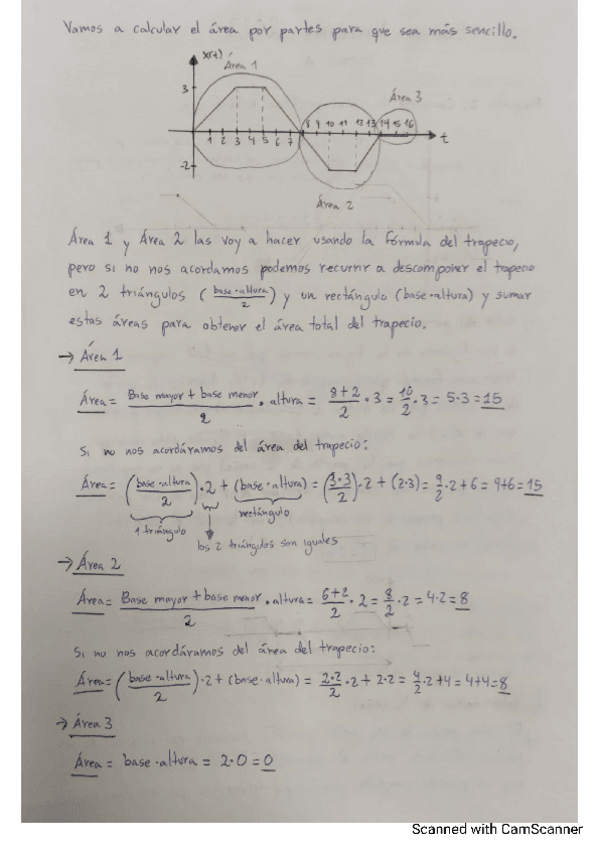 Vamos a calcular el área por partes para que sea más sencillo.
x(t)
Área 1
3
Área 3
1 2 3 4 5 6 7 8 9 10 11 12 13 14 15 16
t
-2
Área 2
Área 1 y Área 2 las voy a hacer usando la fórmula del trapecio,
pero si no nos acordamos podemos recurrir a descomponer el trapecio
en 2 triángulos (base·altura/2) y un rectángulo (base·altura) y sumar
estas áreas para obtener el área total del trapecio.
→ Área 1
Área = Base mayor + base menor/2 · altura = 8+2/2 · 3 = 10/2 · 3 = 5·3 = 15
Si no nos acordáramos del área del trapecio:
Área = (base·altura/2) · 2 + (base·altura) = (3·3/2) · 2 + (2·3) = 9/2 · 2 + 6 = 9+6 = 15
1 triángulo
rectángulo
los 2 triángulos son iguales
→ Área 2
Área = Base mayor + base menor/2 · altura = 6+2/2 · 2 = 8/2 · 2 = 4·2 = 8
Si no nos acordáramos del área del trapecio:
Área = (base·altura/2) · 2 + (base·altura) = 2·2/2 · 2 + 2·2 = 4/2 · 2 + 4 = 4+4 = 8
→ Área 3
Área = base·altura = 2·0 = 0
Scanned with CamScanner